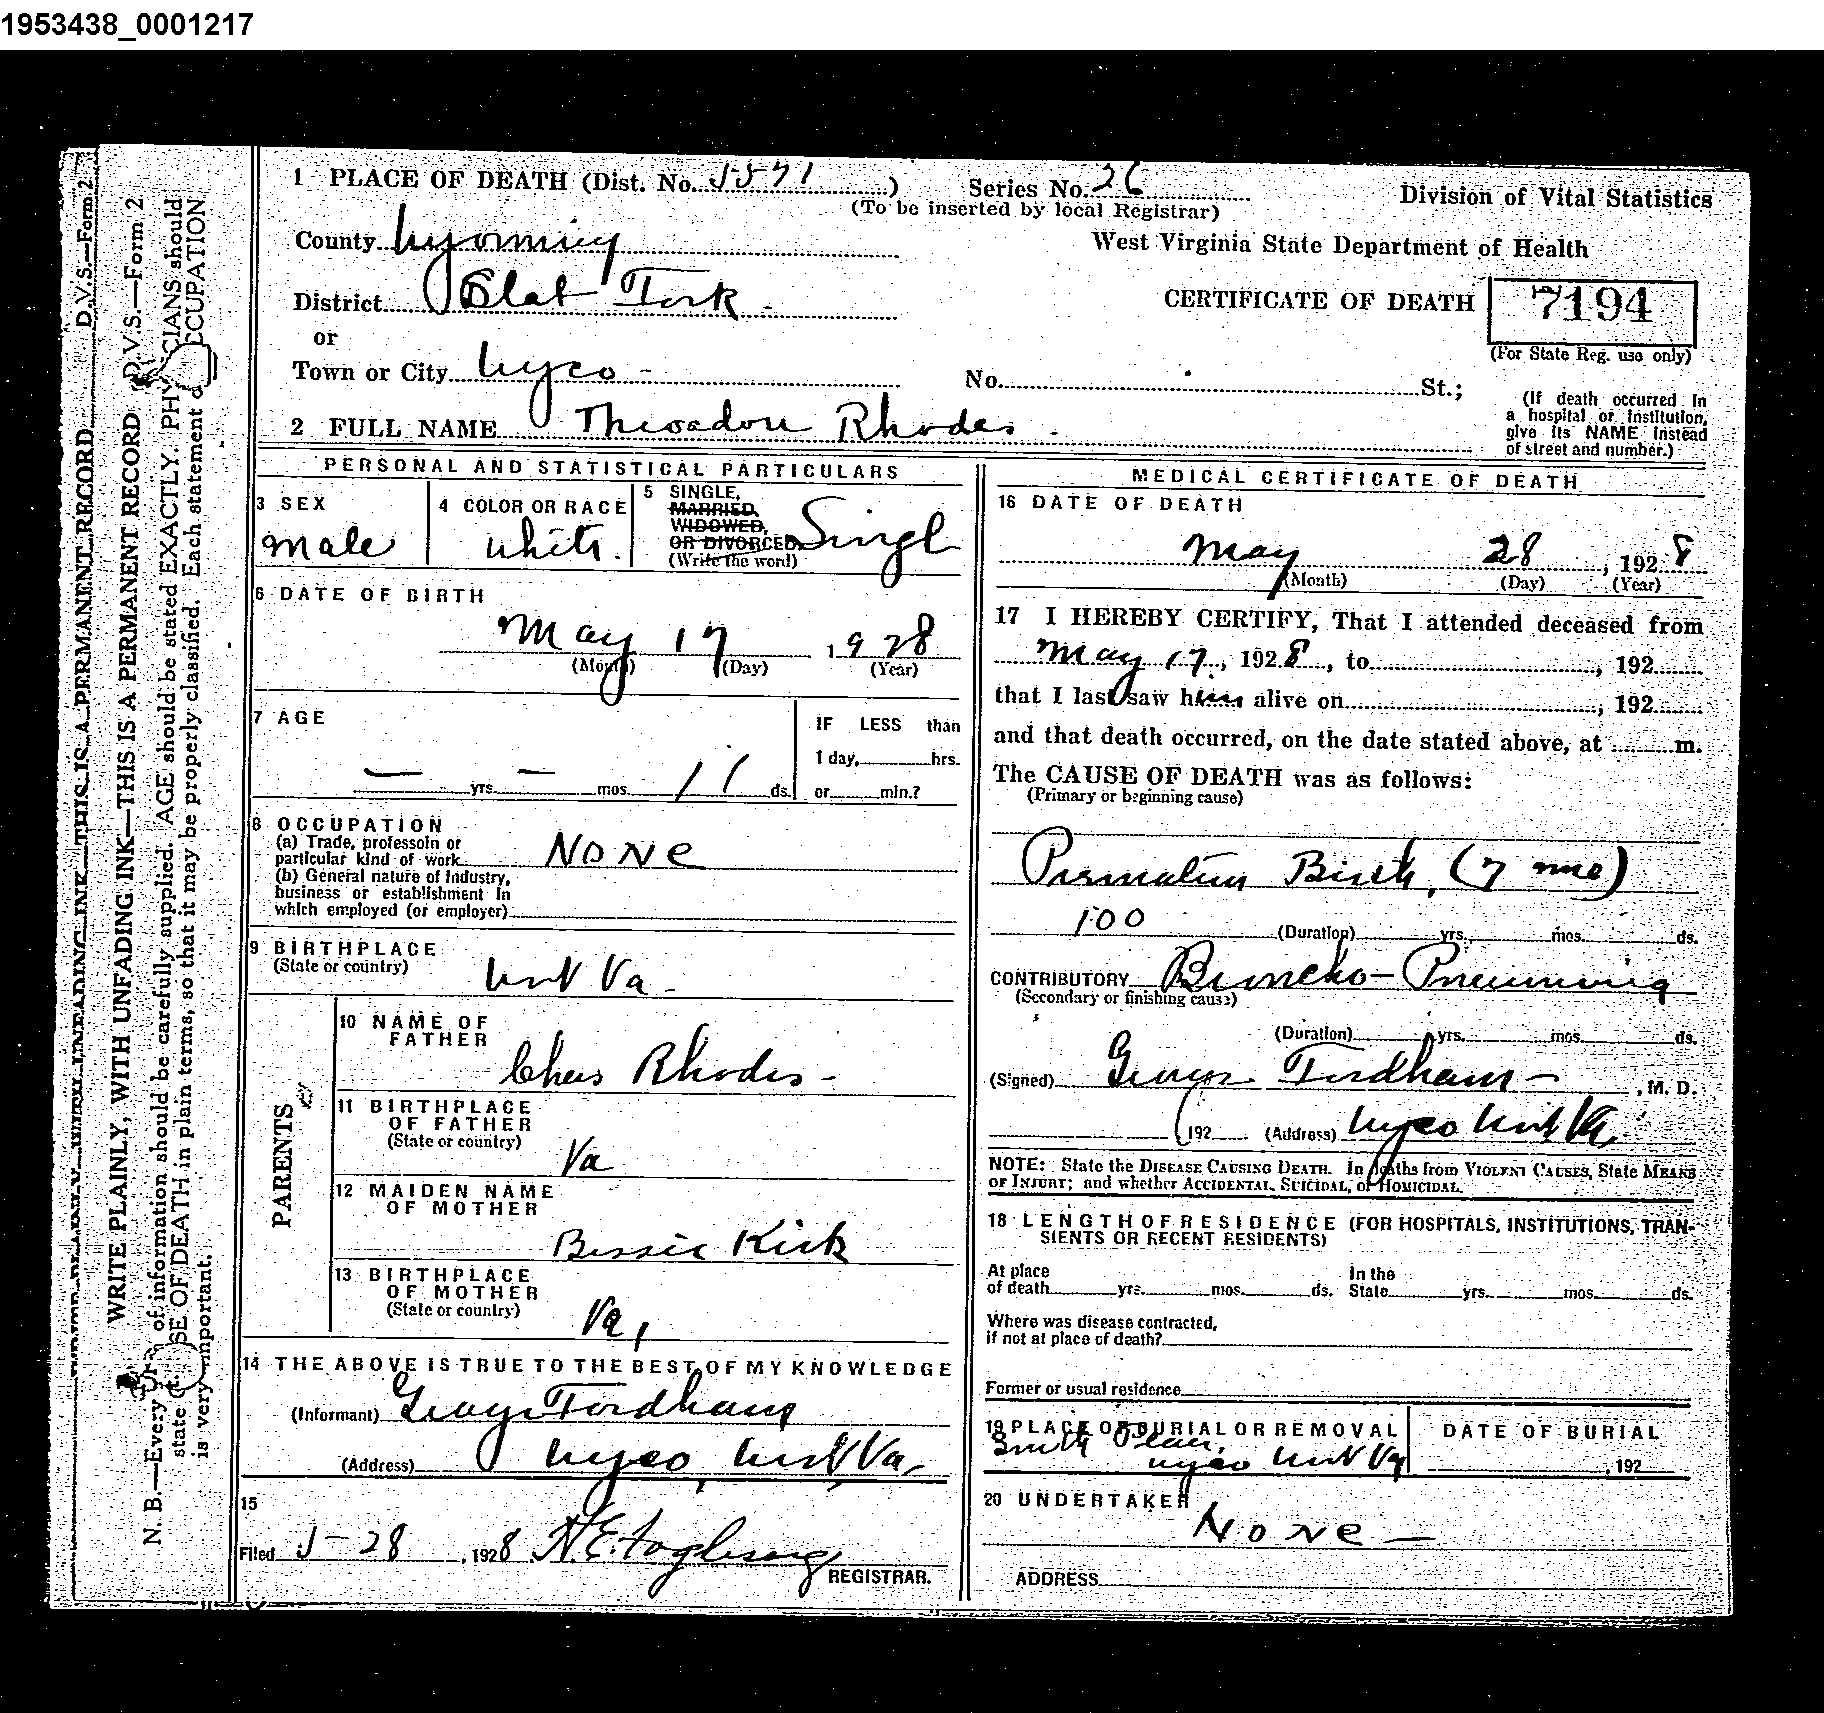 1953438_0001217
1 PLACE OF DEATH (Dist. No. 5571) Series No. 26
(To be inserted by local Registrar)
Division of Vital Statistics
County Wyoming
West Virginia State Department of Health
District Slab Fork
CERTIFICATE OF DEATH 7194
(For State Reg. use only)
or
Town or City Wyco No. St.;
(If death occurred in
a hospital or institution,
give its NAME instead
of street and number.)
2 FULL NAME Theoadore Rhodes
PERSONAL AND STATISTICAL PARTICULARS
3 SEX
male
4 COLOR OR RACE
white.
5 SINGLE,
MARRIED,
WIDOWED,
OR DIVORCED
(Write the word)
Singl
6 DATE OF BIRTH
May 17 1928
(Month) (Day) (Year)
7 AGE
— yrs. — mos. 11 ds.
IF LESS than
1 day, hrs.
or min.?
8 OCCUPATION
(a) Trade, professoin or
particular kind of work NONe
(b) General nature of Industry,
business or establishment in
which employed (or employer)
9 BIRTHPLACE
(State or country) West Va
PARENTS
10 NAME OF
FATHER
Chas Rhodes
11 BIRTHPLACE
OF FATHER
(State or country)
Va
12 MAIDEN NAME
OF MOTHER
Bessie Kirk
13 BIRTHPLACE
OF MOTHER
(State or country)
Va,
14 THE ABOVE IS TRUE TO THE BEST OF MY KNOWLEDGE
(Informant) George Fordham
(Address) Wyco, West Va
15
Filed 5-28, 1928 N.E.
REGISTRAR.
MEDICAL CERTIFICATE OF DEATH
16 DATE OF DEATH
May 28, 1928
(Month) (Day) (Year)
17 I HEREBY CERTIFY, That I attended deceased from
May 17, 1928, to , 192
that I last saw him alive on , 192
and that death occurred, on the date stated above, at m.
The CAUSE OF DEATH was as follows:
(Primary or beginning cause)
Premature Birth, (7 mos)
100
(Duration) yrs. mos. ds.
CONTRIBUTORY Broncho-Pneumonia
(Secondary or finishing cause)
(Duration) yrs. mos. ds.
(Signed) George Fordham — , M. D.
192 (Address) Wyco West Va
NOTE: State the DISEASE CAUSING DEATH. In deaths from VIOLENT CAUSES, State MEANS
OF INJURY; and whether ACCIDENTAL, SUICIDAL, or HOMICIDAL.
18 LENGTH OF RESIDENCE (FOR HOSPITALS, INSTITUTIONS, TRAN-
SIENTS OR RECENT RESIDENTS)
At place
of death yrs. mos. ds.
In the
State yrs. mos. ds.
Where was disease contracted,
if not at place of death?
Former or usual residence
19 PLACE OF BURIAL OR REMOVAL
Smith
Wyco West Va
DATE OF BURIAL
, 192
20 UNDERTAKER
NoNe —
ADDRESS
D.V.S.—Form 2
THIS IS A PERMANENT RECORD
D.V.S.—Form 2
WRITE PLAINLY, WITH UNFADING INK—THIS IS A PERMANENT RECORD
N. B.—Every of information should be carefully supplied. AGE should be stated EXACTLY. PHYSICIANS should
state SE OF DEATH in plain terms, so that it may be properly classified. Each statement of OCCUPATION
is very important.